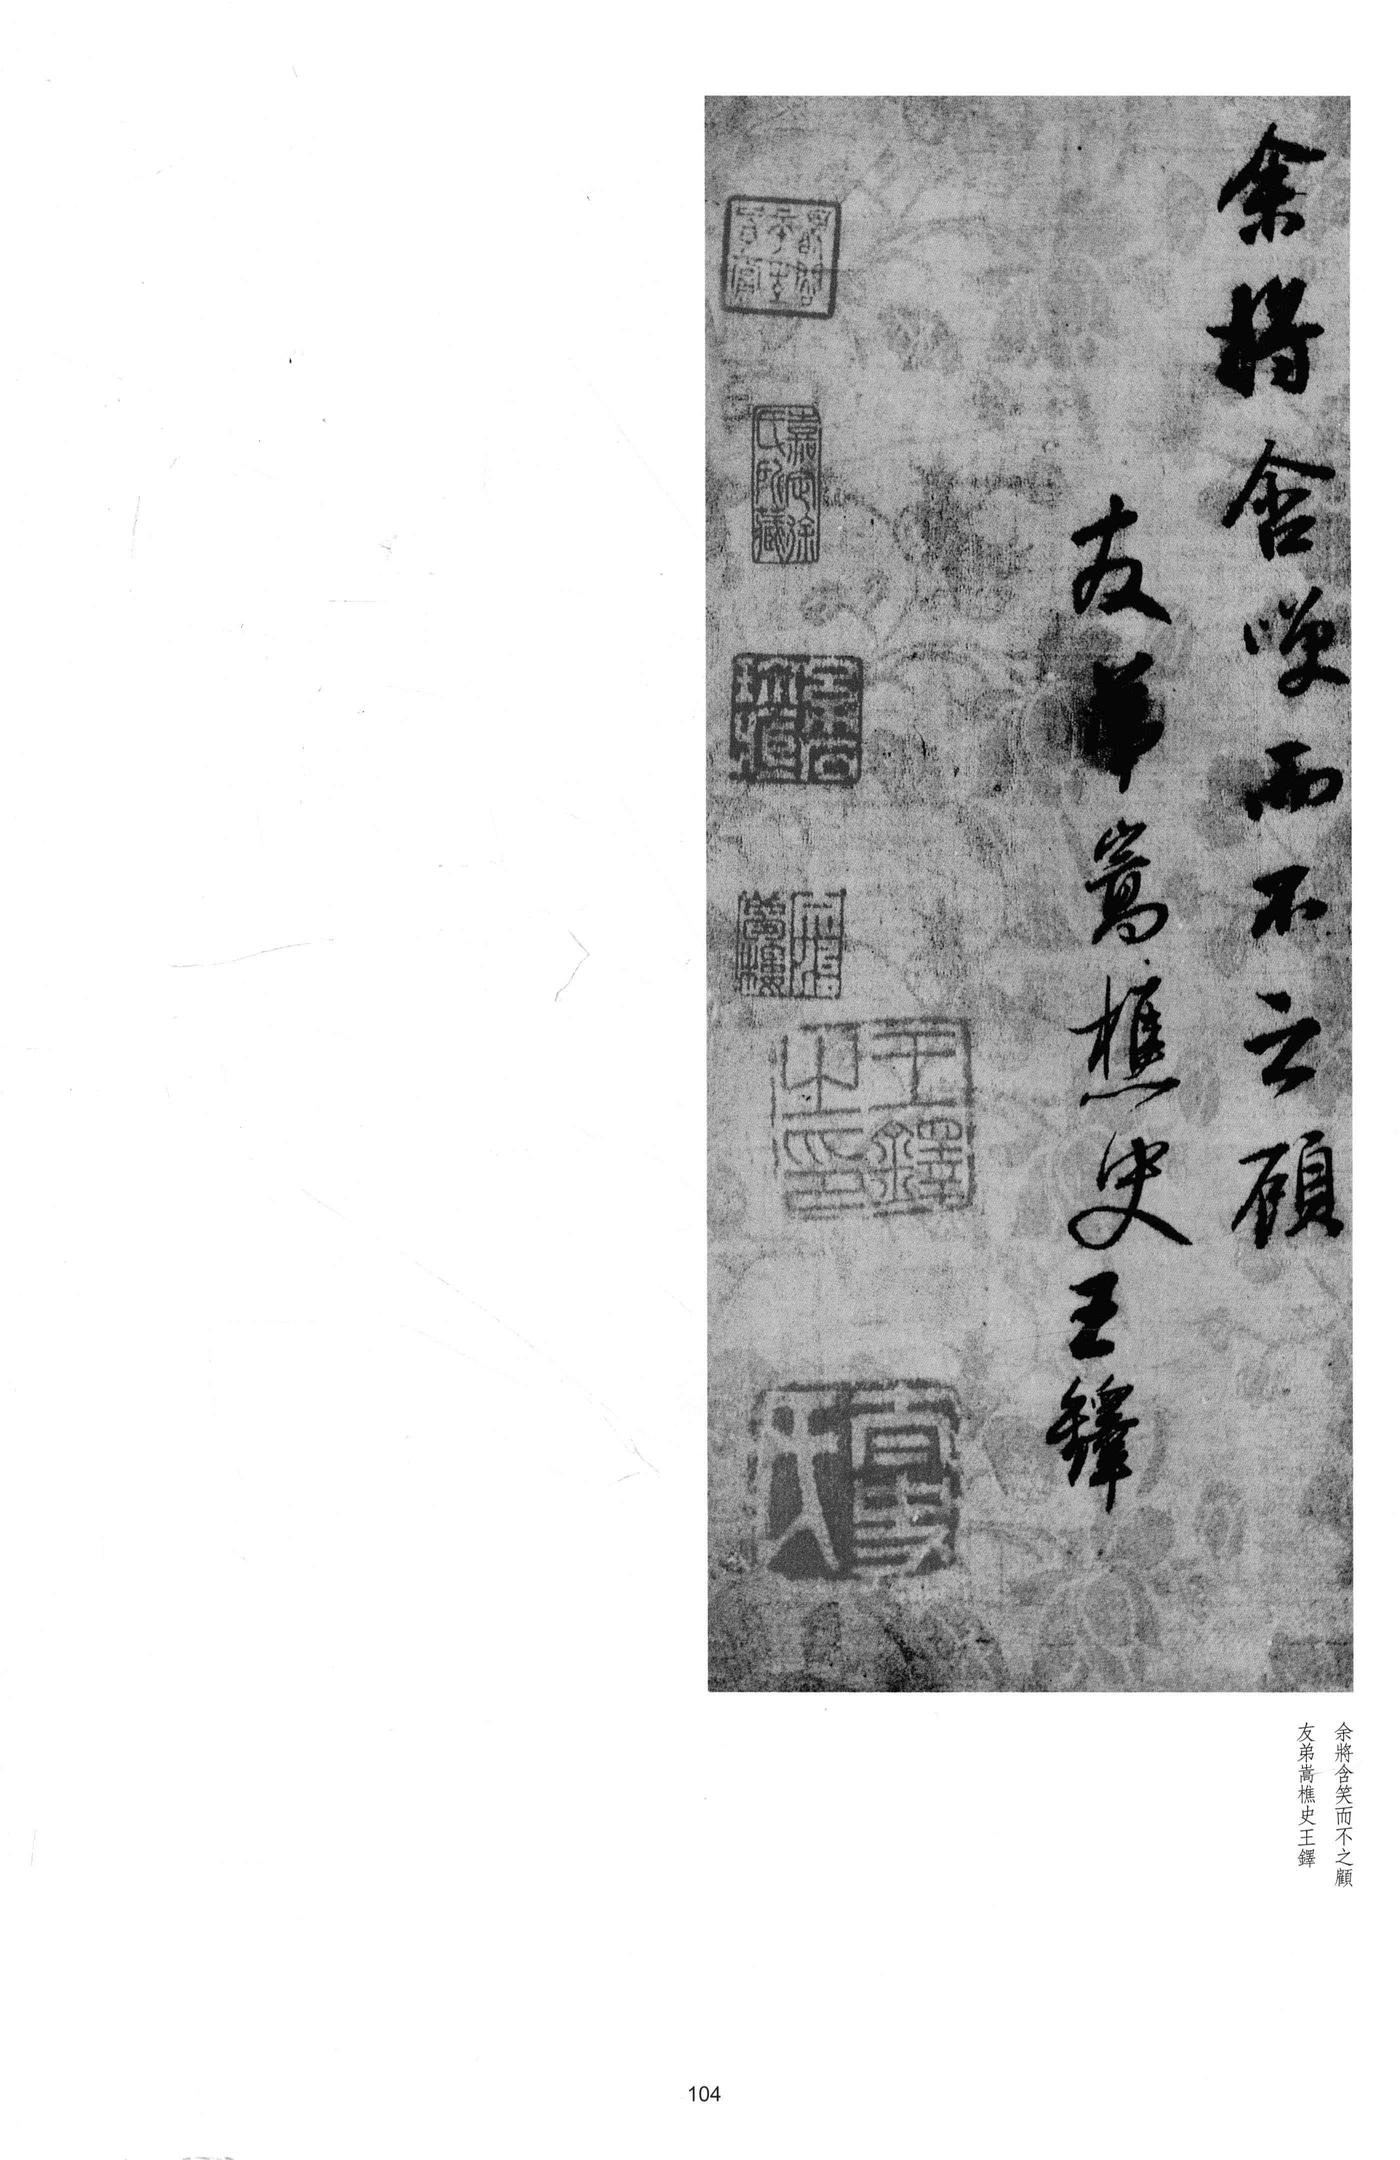 余將含咲而不之顧
友弟嵩樵史王鐸
嘉定徐
氏所藏
王鐸
之印
余將含笑而不之顧
友弟嵩樵史王鐸
104